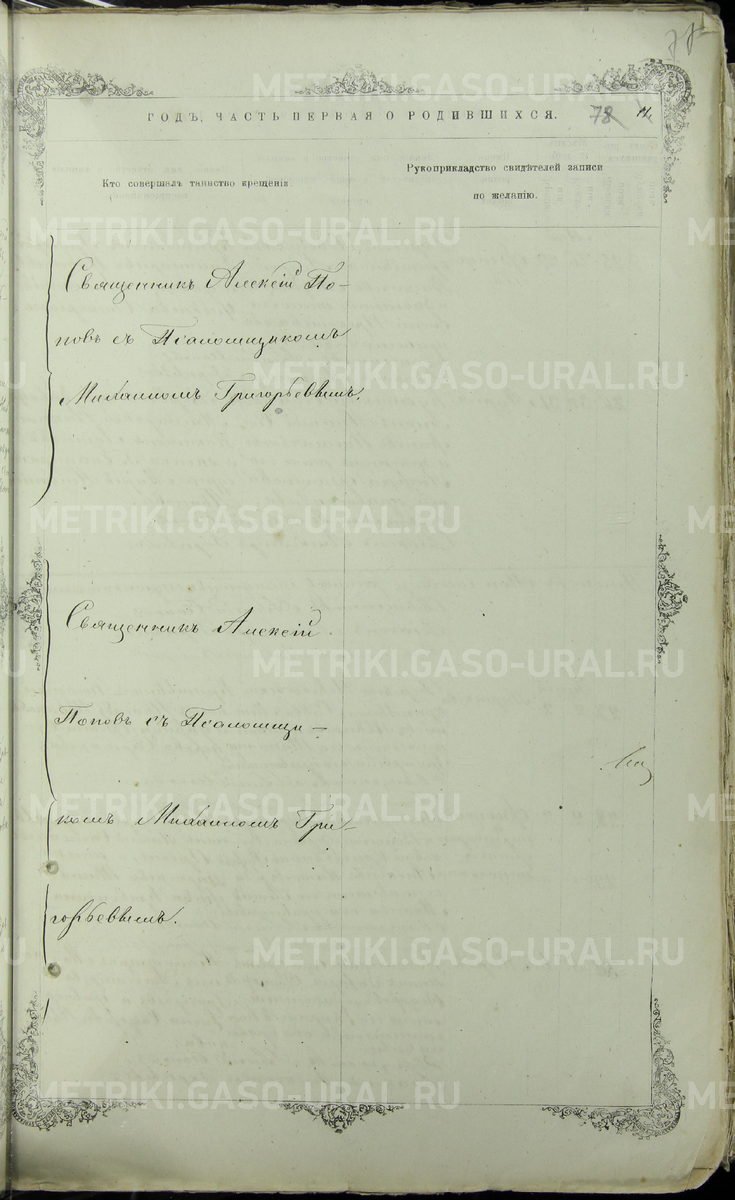 ГОДЪ, ЧАСТЬ ПЕРВАЯ О РОДИВШИХСЯ.
78
Кто совершалъ таинство крещенія
Рукоприкладство свидѣтелей записи
по желанію.
Священникъ Алексій По-
повъ съ Псаломщикомъ
Михаиломъ Григорьевымъ.
Священникъ Алексій
Поповъ съ Псаломщи-
комъ Михаиломъ Гри-
горьевымъ.
METRIKI.GASO-URAL.RU